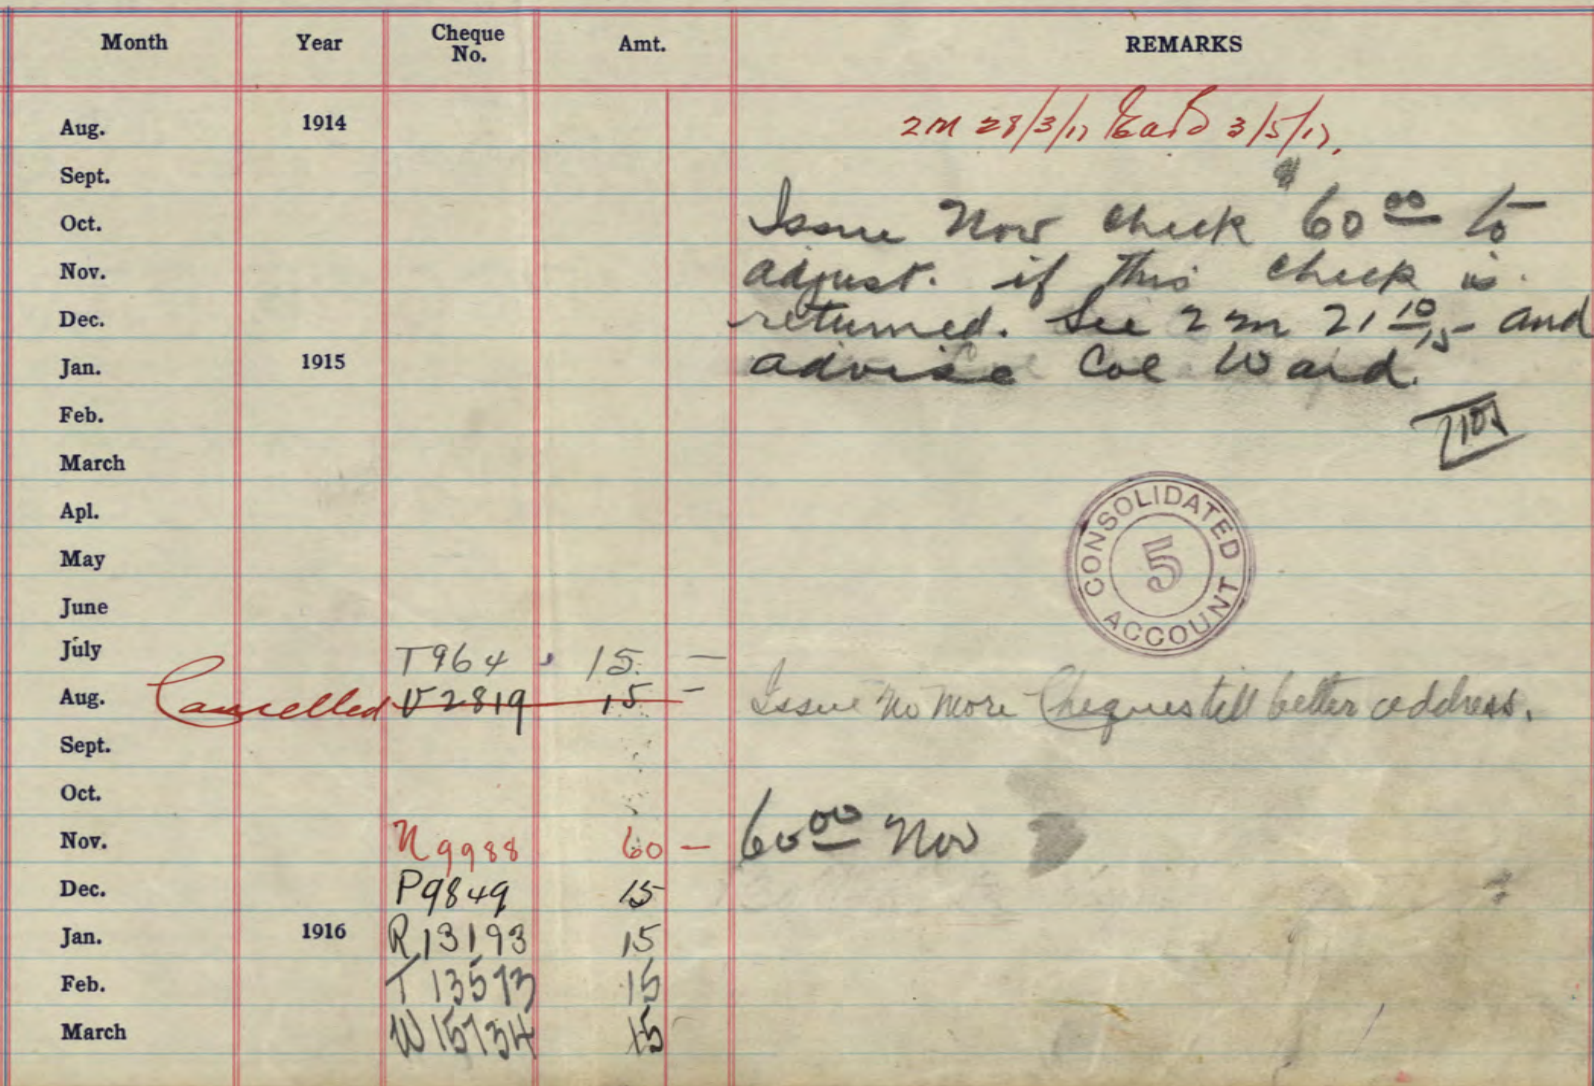 Month Year Cheque No. Amt. REMARKS
Aug. 1914 2M 28/3/17 3/5/17.
Sept.
Oct. Issue Nov check $60 00 to
Nov. adjust. if this check is
Dec. returned. See 2 m 21 10/15 - and
Jan. 1915 advise Col Ward.
Feb.
March
Apl. CONSOLIDATED
May 5
June ACCOUNT
July T964 15. —
Aug. Cancelled V2819 15 — Issue no more Cheques till better address.
Sept.
Oct.
Nov. N9988 60 — 60 00 Nov
Dec. P9849 15
Jan. 1916 R13193 15
Feb. T13573 15
March W15734 15